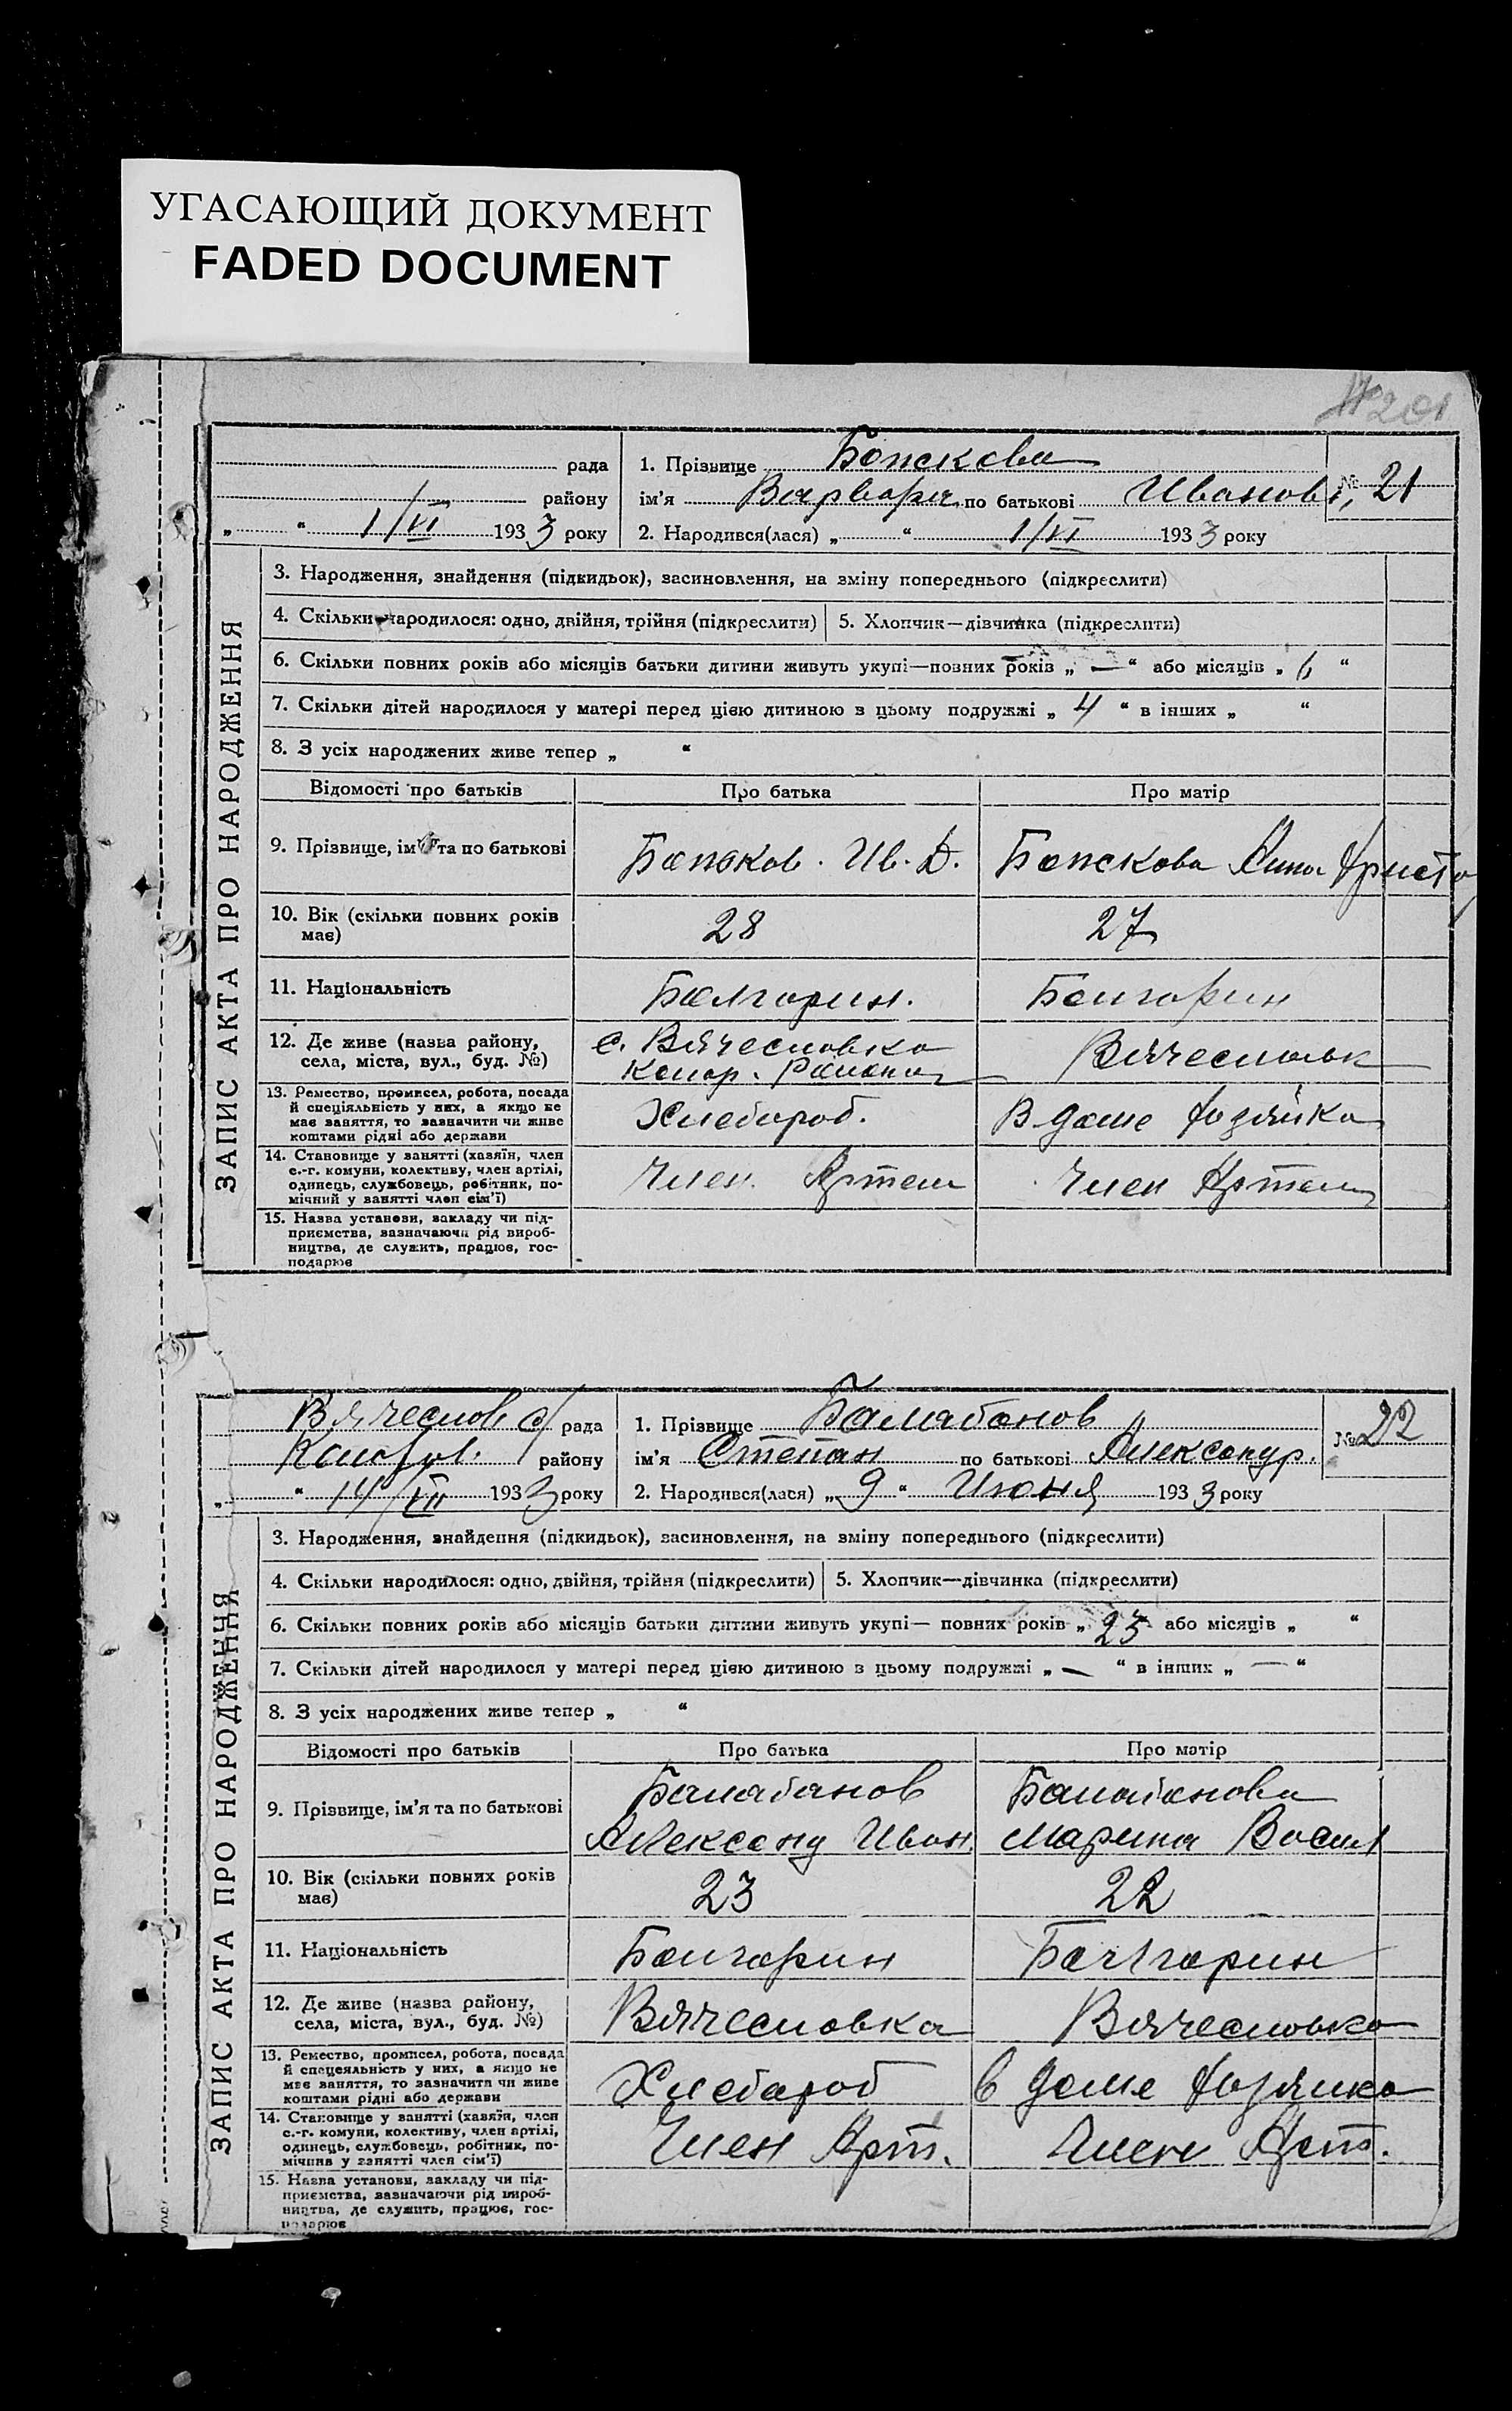 УГАСАЮЩИЙ ДОКУМЕНТ
FADED DOCUMENT
201
рада
району
„ “ 1/VI 1933 року
1. Прізвище
ім'я Варвара по батькові Иванов
2. Народився(лася) „ “ 1/VI 1933 року
№ 21
ЗАПИС АКТА ПРО НАРОДЖЕННЯ
3. Народження, знайдення (підкидьок), засиновлення, на зміну попереднього (підкреслити)
4. Скільки народилося: одно, двійня, трійня (підкреслити)
5. Хлопчик—дівчинка (підкреслити)
6. Скільки повних років або місяців батьки дитини живуть укупі—повних років „ — “ або місяців „ “
7. Скільки дітей народилося у матері перед цією дитиною в цьому подружжі „ 4 “ в інших „ “
8. З усіх народжених живе тепер „ “
Відомості про батьків
Про батька
Про матір
9. Прізвище, ім'я та по батькові
Ив. Д.
10. Вік (скільки повних років
має)
28
27
11. Національність
Болгарин.
Болгарин
12. Де живе (назва району,
села, міста, вул., буд. №)
с. Вячесловка
Колар. Района
Вячесловк
13. Ремество, промисел, робота, посада
й спеціяльність у них, а якщо не
має заняття, то зазначити чи живе
коштами рідні або держави
Хлебороб.
В доме хозяйка
14. Становище у занятті (хазяїн, член
с.-г. комуни, колективу, член артілі,
одинець, службовець, робітник, по-
мічний у занятті член сім'ї)
Член Артели
Член Артели
15. Назва установи, закладу чи під-
приємства, зазначаючи рід вироб-
ництва, де служить, працює, гос-
подарює
Вячеслов с/рада
Коларов. району
„ “ 14/VII 1933 року
1. Прізвище Балабанов
ім'я Степан по батькові Александр.
2. Народився(лася) „ 9 “ Июня 1933 року
№ 22
ЗАПИС АКТА ПРО НАРОДЖЕННЯ
3. Народження, знайдення (підкидьок), засиновлення, на зміну попереднього (підкреслити)
4. Скільки народилося: одно, двійня, трійня (підкреслити)
5. Хлопчик—дівчинка (підкреслити)
6. Скільки повних років або місяців батьки дитини живуть укупі— повних років „ 23 або місяців „ “
7. Скільки дітей народилося у матері перед цією дитиною в цьому подружжі „ — “ в інших „ — “
8. З усіх народжених живе тепер „ “
Відомості про батьків
Про батька
Про матір
9. Прізвище, ім'я та по батькові
Балабанов
Александ Иван.
Балабанова
Марина Васил
10. Вік (скільки повних років
має)
23
22
11. Національність
Болгарин
Болгарин
12. Де живе (назва району,
села, міста, вул., буд. №)
Вячесловка
Вячесловка
13. Ремество, промисел, робота, посада
й спецеяльність у них, а якщо не
має заняття, то зазначити чи живе
коштами рідні або держави
Хлебароб
в доме хозяика
14. Становище у занятті (хазяїн, член
с.-г. комуни, колективу, член артілі,
одинець, службовець, робітник, по-
мічнив у занятті член сім'ї)
Член Арт.
Член Арт.
15. Назва установи, закладу чи під-
приємства, зазначаючи рід вироб-
ництва, де служить, працює, гос-
подарює